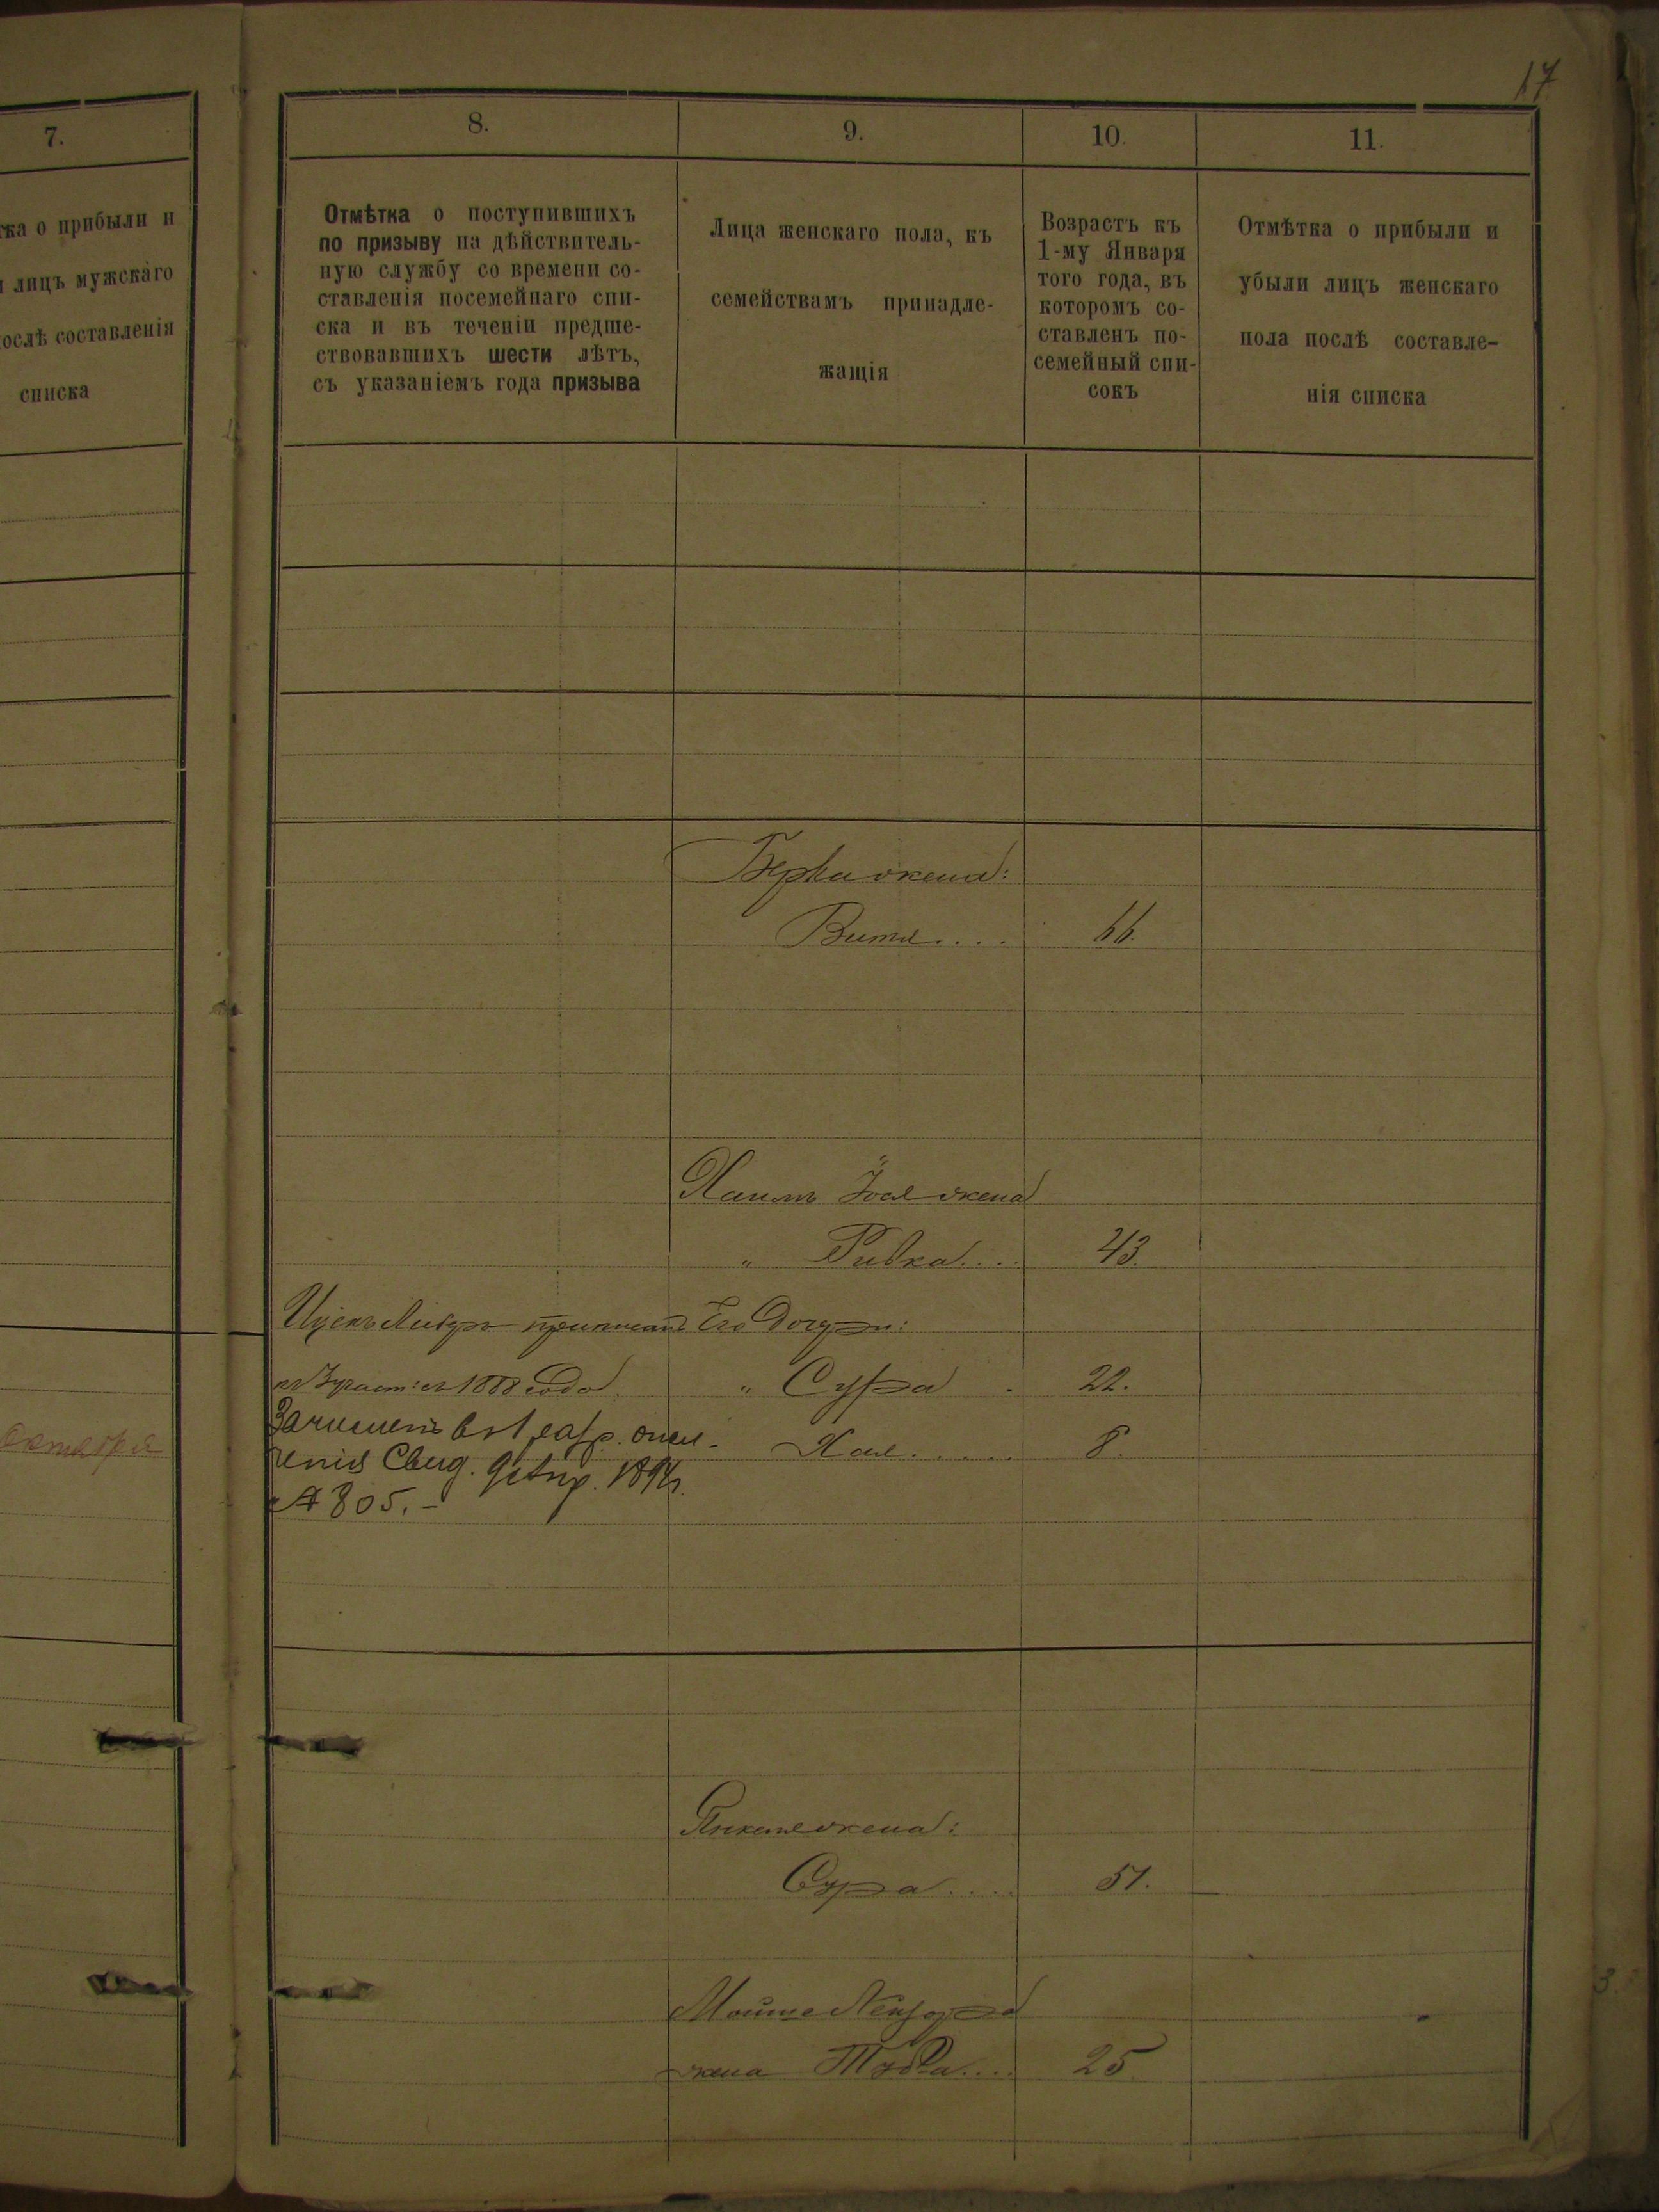 17
7.
тка о прибыли и
лицъ мужскаго
послѣ составленія
списка
октября
8.
Отмѣтка о поступившихъ
по призыву на дѣйствитель-
ную службу со времени со-
ставленія посемейнаго спи-
ска и въ теченіи предше-
ствовавшихъ шести лѣтъ,
съ указаніемъ года призыва
9.
Лица женскаго пола, къ
семействамъ принадле-
жащія
10.
Возрастъ къ
1-му Января
того года, въ
которомъ со-
ставленъ по-
семейный спи-
сокъ
11.
Отмѣтка о прибыли и
убыли лицъ женскаго
пола послѣ составле-
нія списка
Берка жена:
Витя.... 66.
Хаимъ Зоая жена
" Ривка.... 43.
Ицекъ Лейзеръ приписанъ Его Дочери:
1888 года. " Сура . 22.
Зачисленъ въ 1 разр. опол-
ченія Свид. 1894г.
Хая..... 8.
№ 805.-
Янкеля жена:
Сура.... 51.
Мойше
жена Тодба.... 25